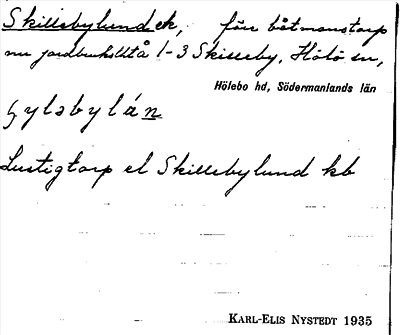 Skillebylund ek, förr båtsmanstorp
nu jordbrukslht å 1-3 Skilleby, Hölö sn,
Hölebo hd, Södermanlands län
Lustigtorp el Skillebylund kb
KARL-ELIS NYSTEDT 1935